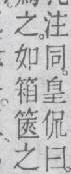 注同。皇侃曰。
之。如箱篋之